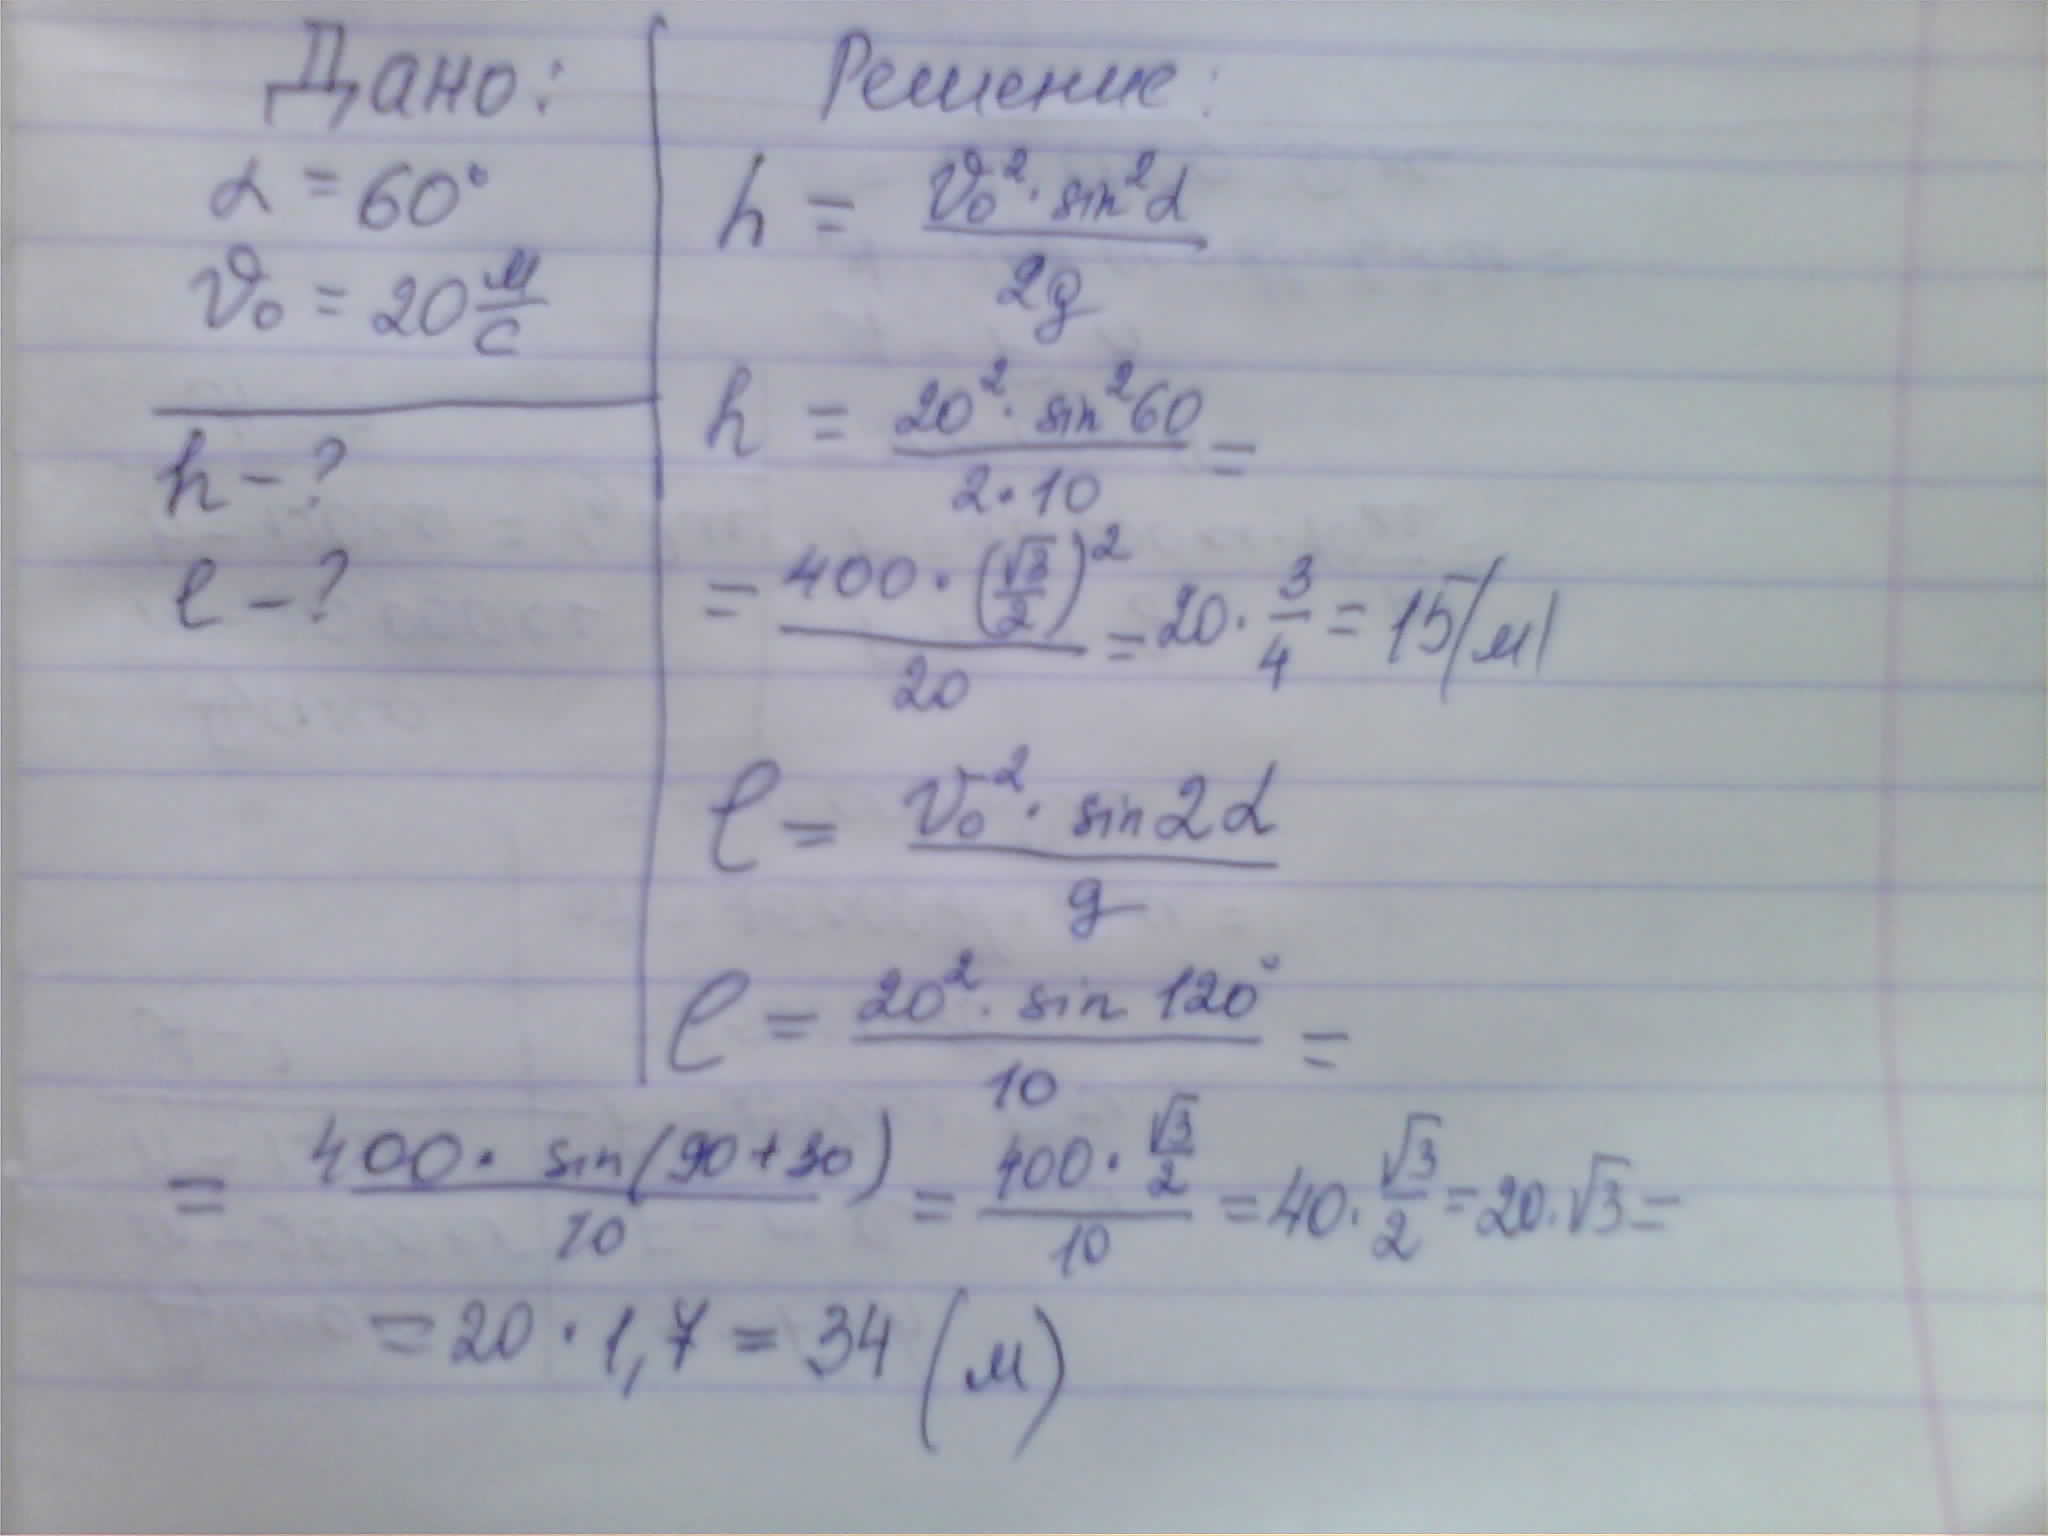 Дано:
α = 60°
υ₀ = 20 м/с
h - ?
ℓ - ?
Решение:
h = υ₀² · sin²α / 2g
h = 20² · sin²60 / 2·10 =
= 400 · (√3/2)² / 20 = 20 · 3/4 = 15 (м)
ℓ = υ₀² · sin2α / g
ℓ = 20² · sin 120° / 10 =
= 400 · sin(90+30) / 10 = 400 · √3/2 / 10 = 40 · √3/2 = 20 · √3 =
= 20 · 1,7 = 34 (м)